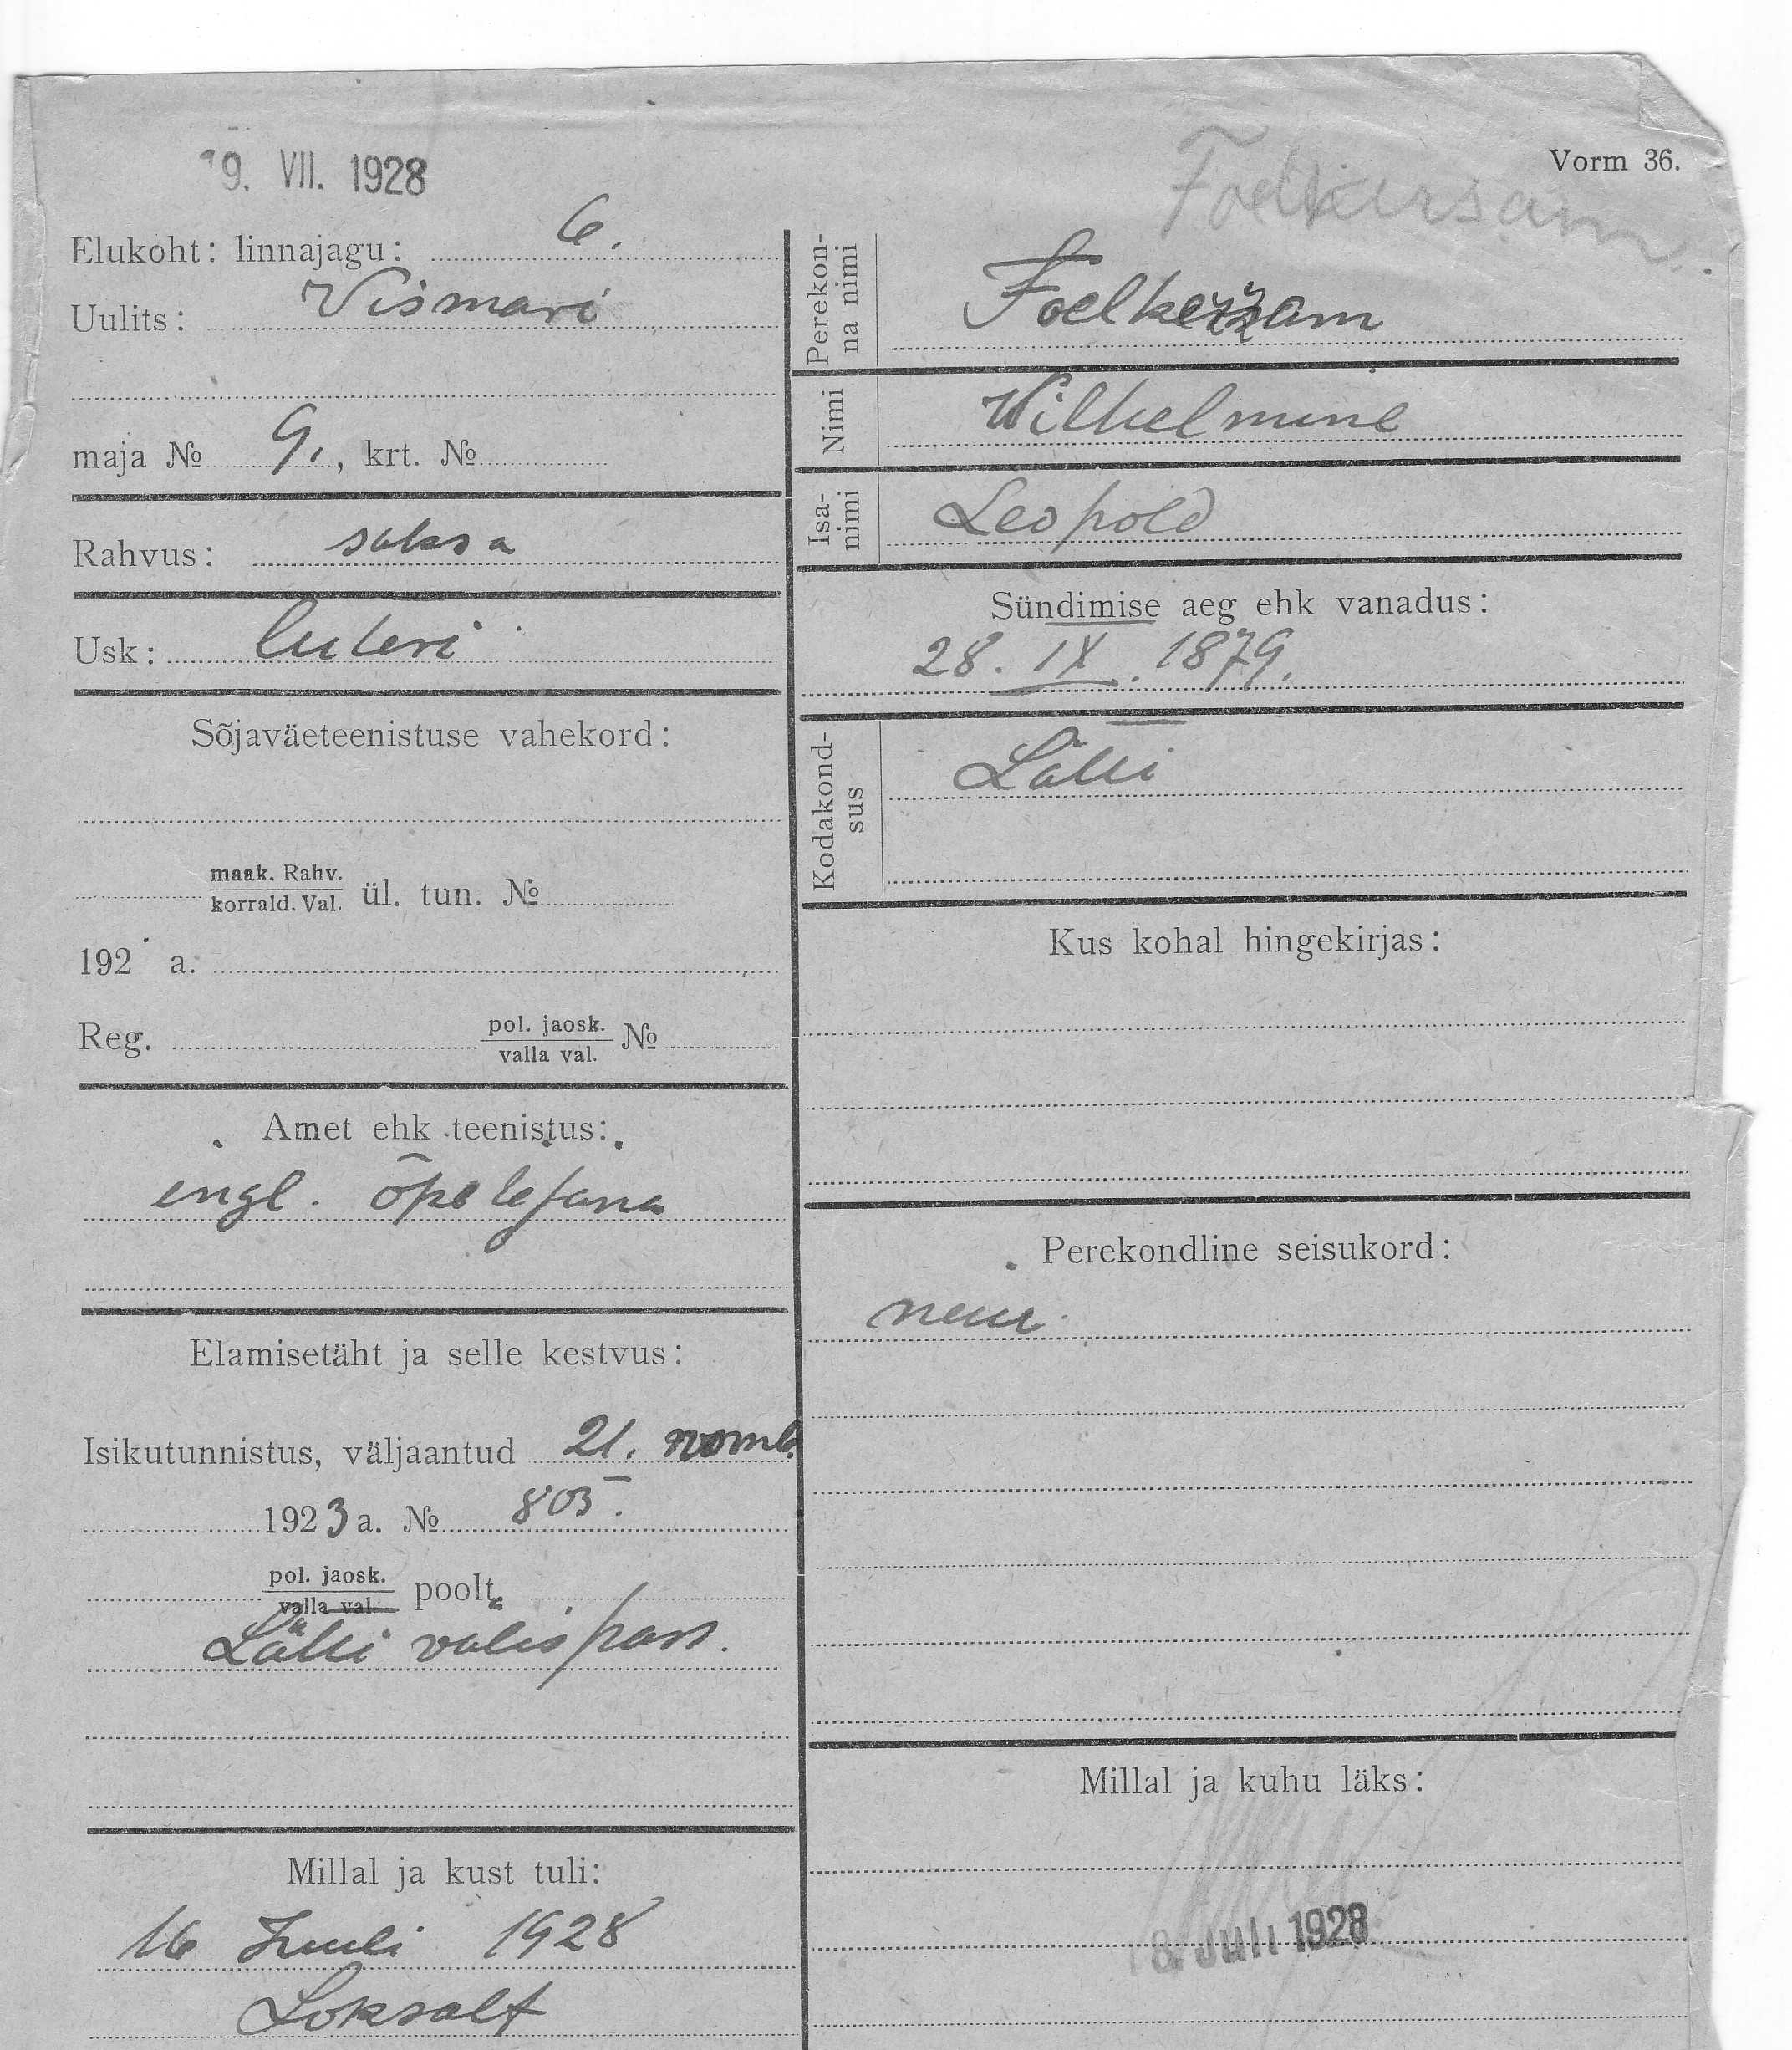 19. VII. 1928
Vorm 36.
Foelkersam
Elukoht: linnajagu: 6.
Uulits: Vismari
maja № 9., krt. №
Rahvus: saksa
Usk: luteri
Sõjaväeteenistuse vahekord:
maak. Rahv.
korrald. Val. ül. tun. №
192 a.
Reg. pol. jaosk.
valla val. №
Amet ehk teenistus:
engl. õpetejana
Elamisetäht ja selle kestvus:
Isikutunnistus, väljaantud 21. novmb.
1923 a. № 805.
pol. jaosk.
valla val. poolt
Läti välispass.
Millal ja kust tuli:
16 Juuli 1928
Loksalt
Perekon-
na nimi
Foelkerzam
Nimi Wilhelmine
Isa-
nimi
Leopold
Sündimise aeg ehk vanadus:
28. IX. 1879.
Kodakond-
sus
Läti
Kus kohal hingekirjas:
Perekondline seisukord:
Millal ja kuhu läks:
18. Juli 1928